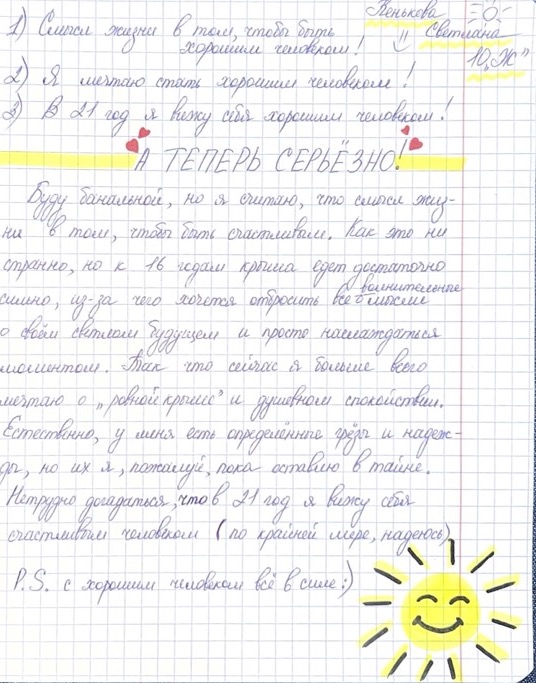 Кенькева
Светлана
10 „Ж"
1) Смысл жизни в том, чтобы быть
хорошим человеком!
2) Я мечтаю стать хорошим человеком!
3) В 21 год я вижу себя хорошим человеком!
А ТЕПЕРЬ СЕРЬЁЗНО!
Буду банальной, но я считаю, что смысл жиз-
ни в том, чтобы быть счастливым. Как это ни
странно, но к 16 годам крыша едет достаточно
сильно, из-за чего хочется отбросить все волнительные мысли
о своём светлом будущем и просто наслаждаться
моментом. Так что сейчас я больше всего
мечтаю о „ровной крыше" и душевном спокойствии.
Естественно, у меня есть определённые грёзы и надеж-
ды, но их я, пожалуй, пока оставлю в тайне.
Нетрудно догадаться, что в 21 год я вижу себя
счастливым человеком (по крайней мере, надеюсь)
P.S. с хорошим человеком всё в силе :)